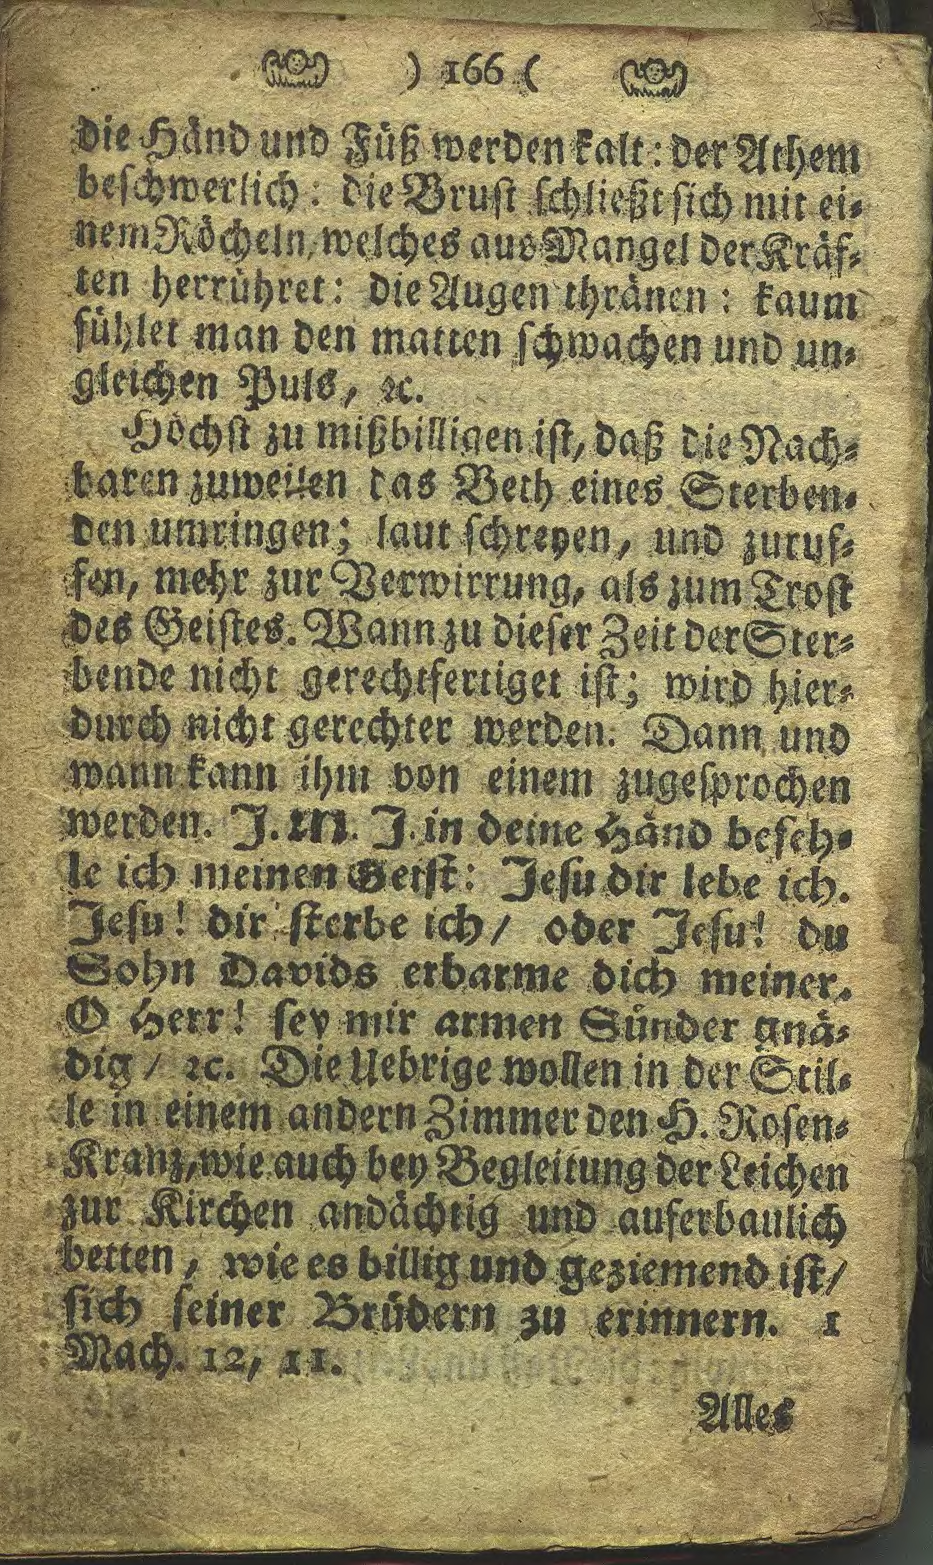 ) 166 (
die Händ und Füß werden kalt: der Athem
beschwerlich: die Brust schließt sich mit ei-
nem Röcheln, welches aus Mangel der Kräf-
ten herrühret: die Augen thränen: kaum
fühlet man den matten schwachen und un-
gleichen Puls, ꝛc.
Höchst zu mißbilligen ist, daß die Nach-
baren zuweilen das Beth eines Sterben-
den umringen; laut schreyen, und zuruf-
fen, mehr zur Verwirrung, als zum Trost
des Geistes. Wann zu dieser Zeit der Ster-
bende nicht gerechtfertiget ist; wird hier-
durch nicht gerechter werden. Dann und
wann kann ihm von einem zugesprochen
werden. J. M. J. in deine Händ befeh-
le ich meinen Geist: Jesu dir lebe ich.
Jesu! dir sterbe ich/ oder Jesu! du
Sohn Davids erbarme dich meiner.
O Herr! sey mir armen Sünder gnä-
dig / ꝛc. Die Uebrige wollen in der Stil-
le in einem andern Zimmer den H. Rosen-
Kranz, wie auch bey Begleitung der Leichen
zur Kirchen andächtig und auferbaulich
betten, wie es billig und geziemend ist/
sich seiner Brüdern zu erinnern. 1
Mach. 12, 11.
Alles